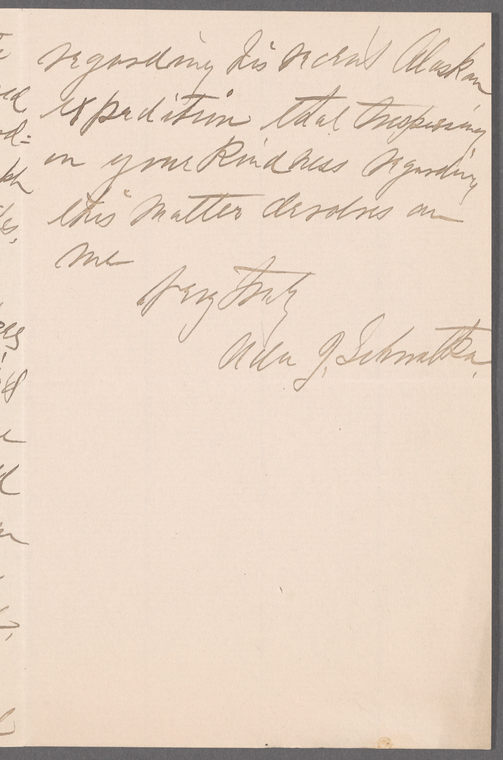 regarding his recent Alaskan
expedition that trespassing
on your kindness regarding
this matter devolves on
me
Very Truly
Ada J. Schwatka.